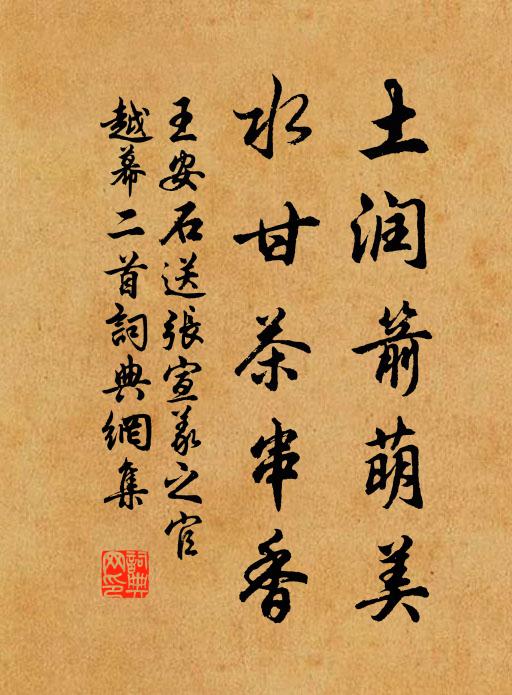 土润箭萌美
水甘茶串香
王安石送張宣义之官
越幕二首詞典網集
詞典网印